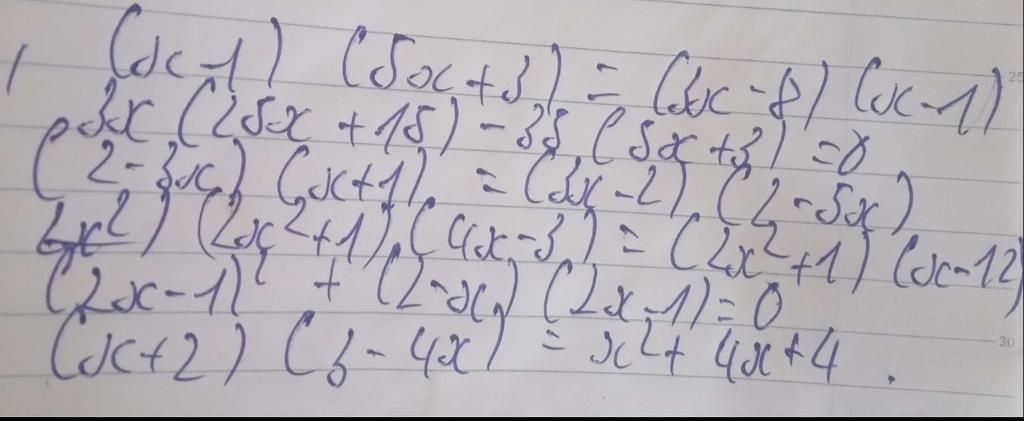 (x-1) (5x+3) = (3x-8) (x-1)
3x (25x + 15) - 35 (5x+3) = 0
(2-3x) (x+1) = (3x-2) (2-5x)
(2x²+1) (4x-3) = (2x²+1) (x-12)
(2x-1)² + (2-x) (2x-1) = 0
(x+2) (3-4x) = x²+ 4x+4 .